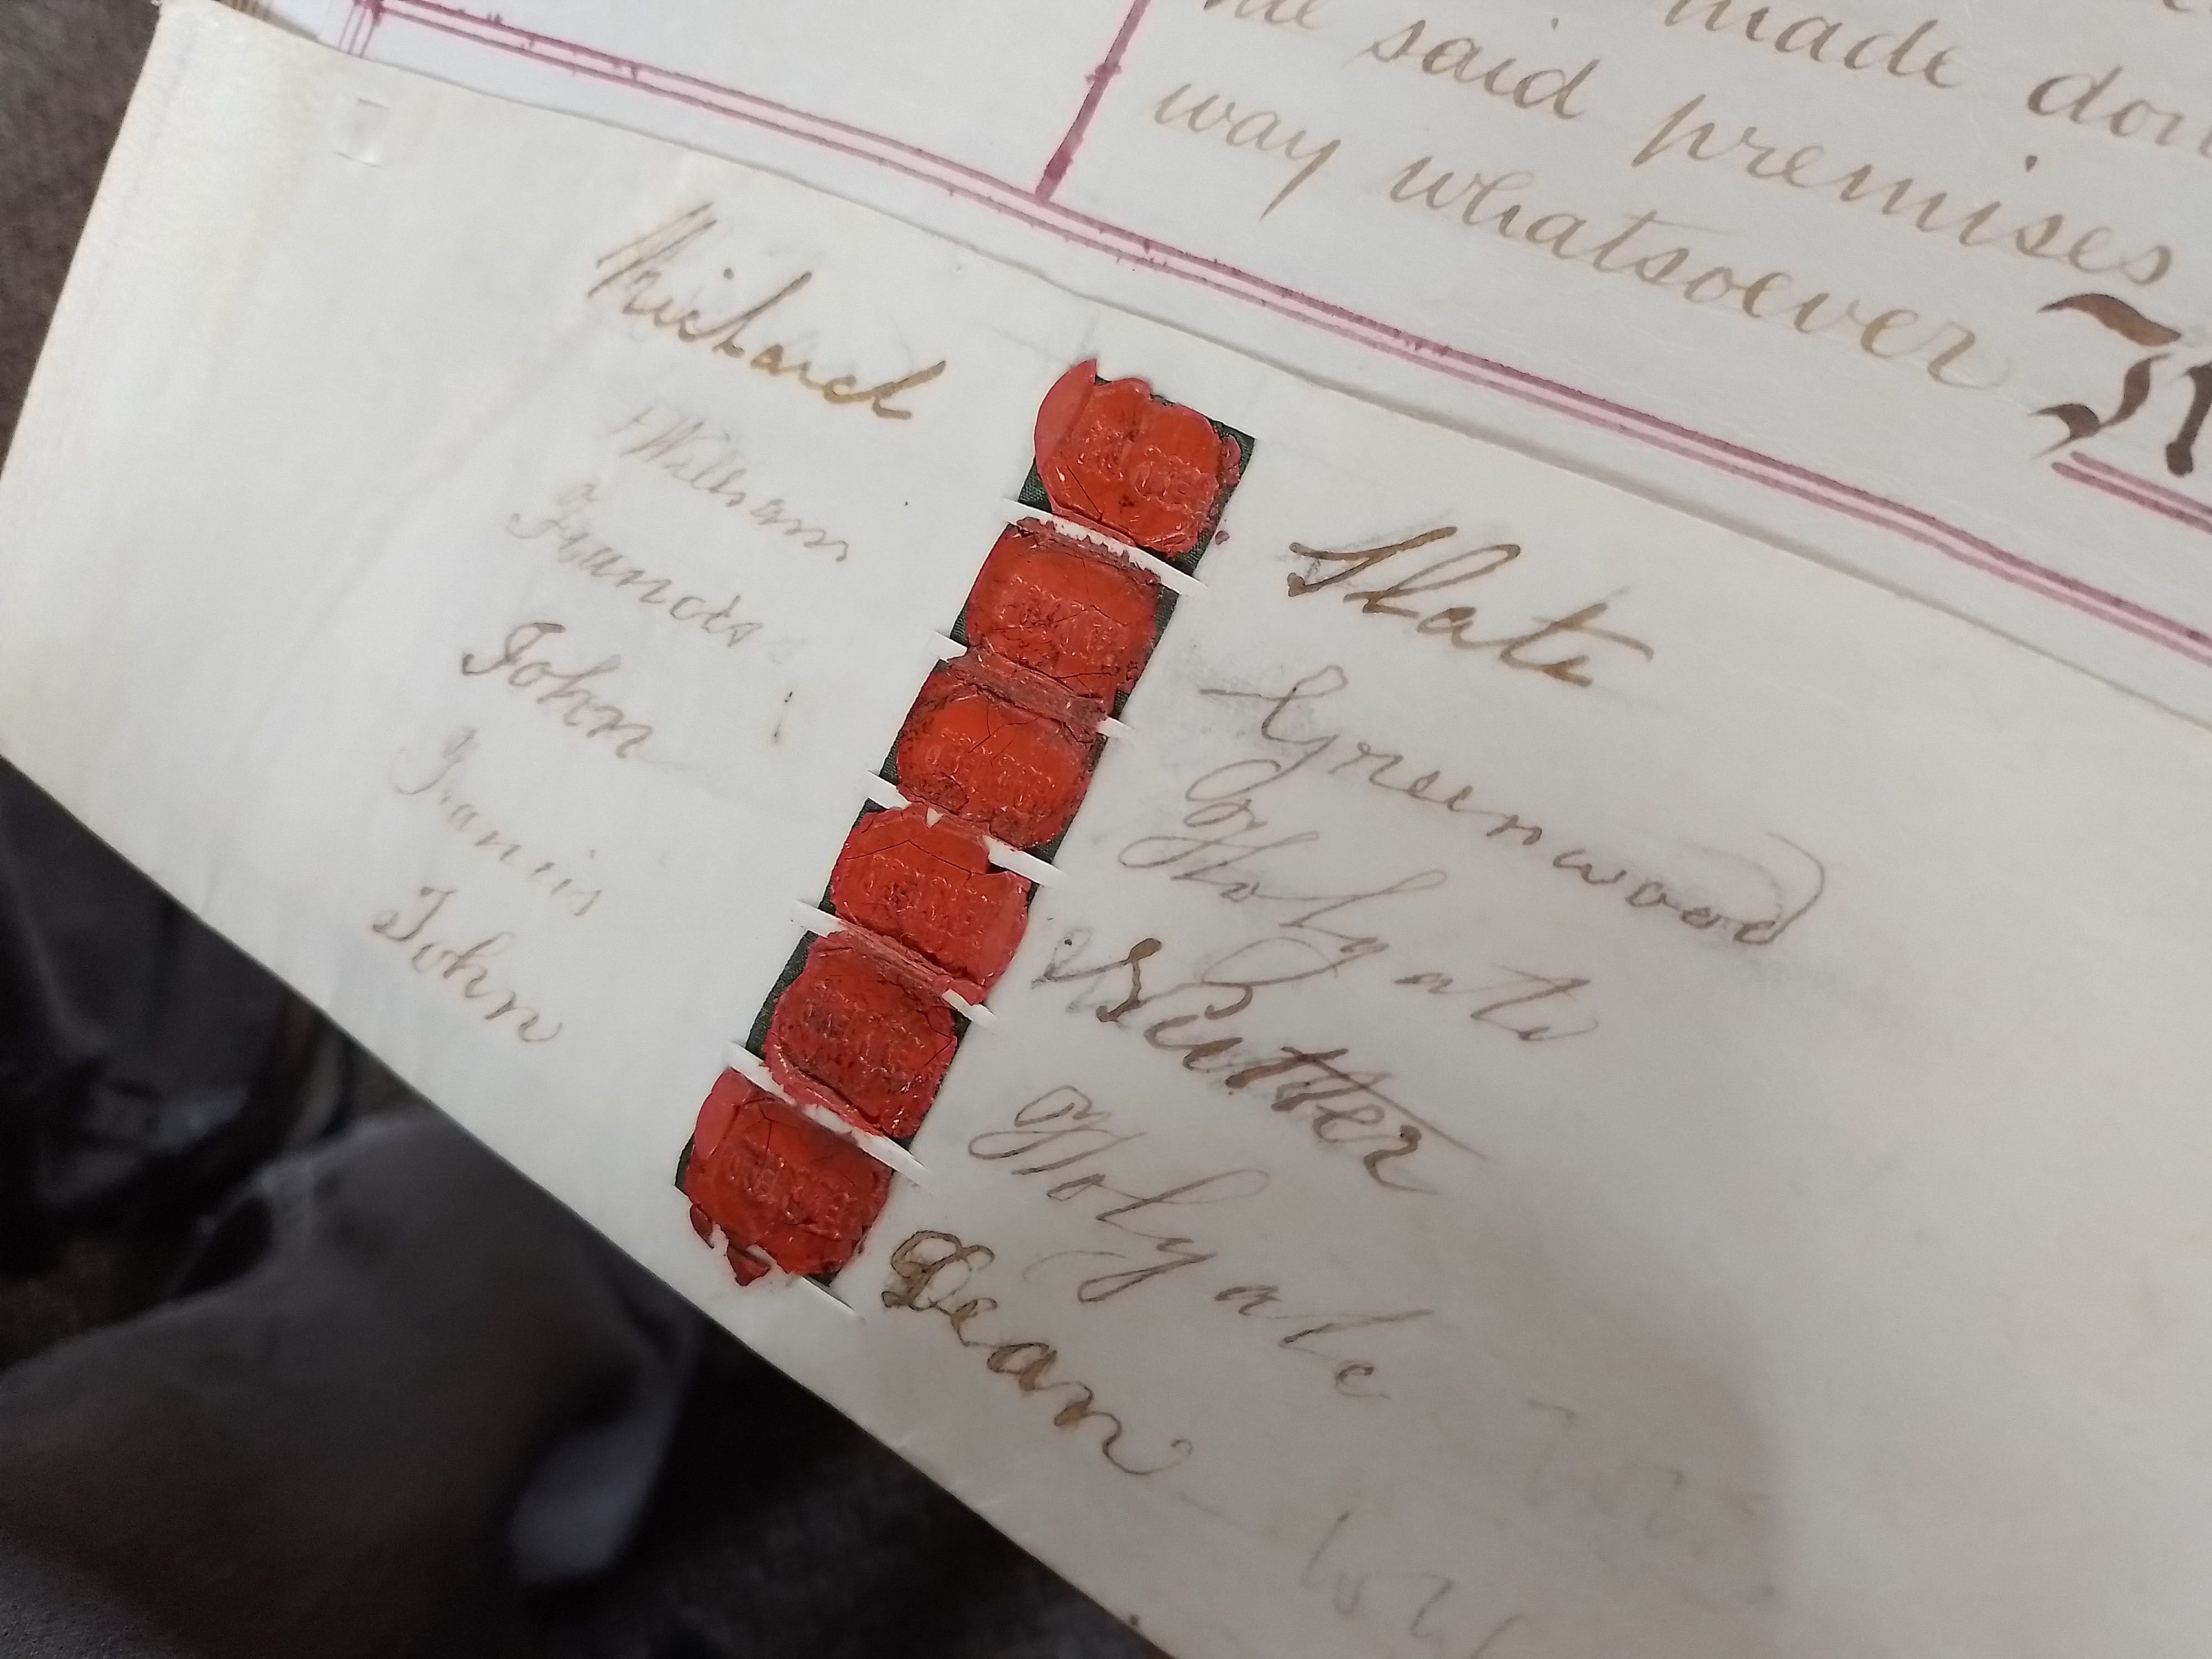 made
said premises
way whatsoever
Richard Slate
William Greenwood
Francis Holgate
John Rutter
Francis Holgate
John Dean